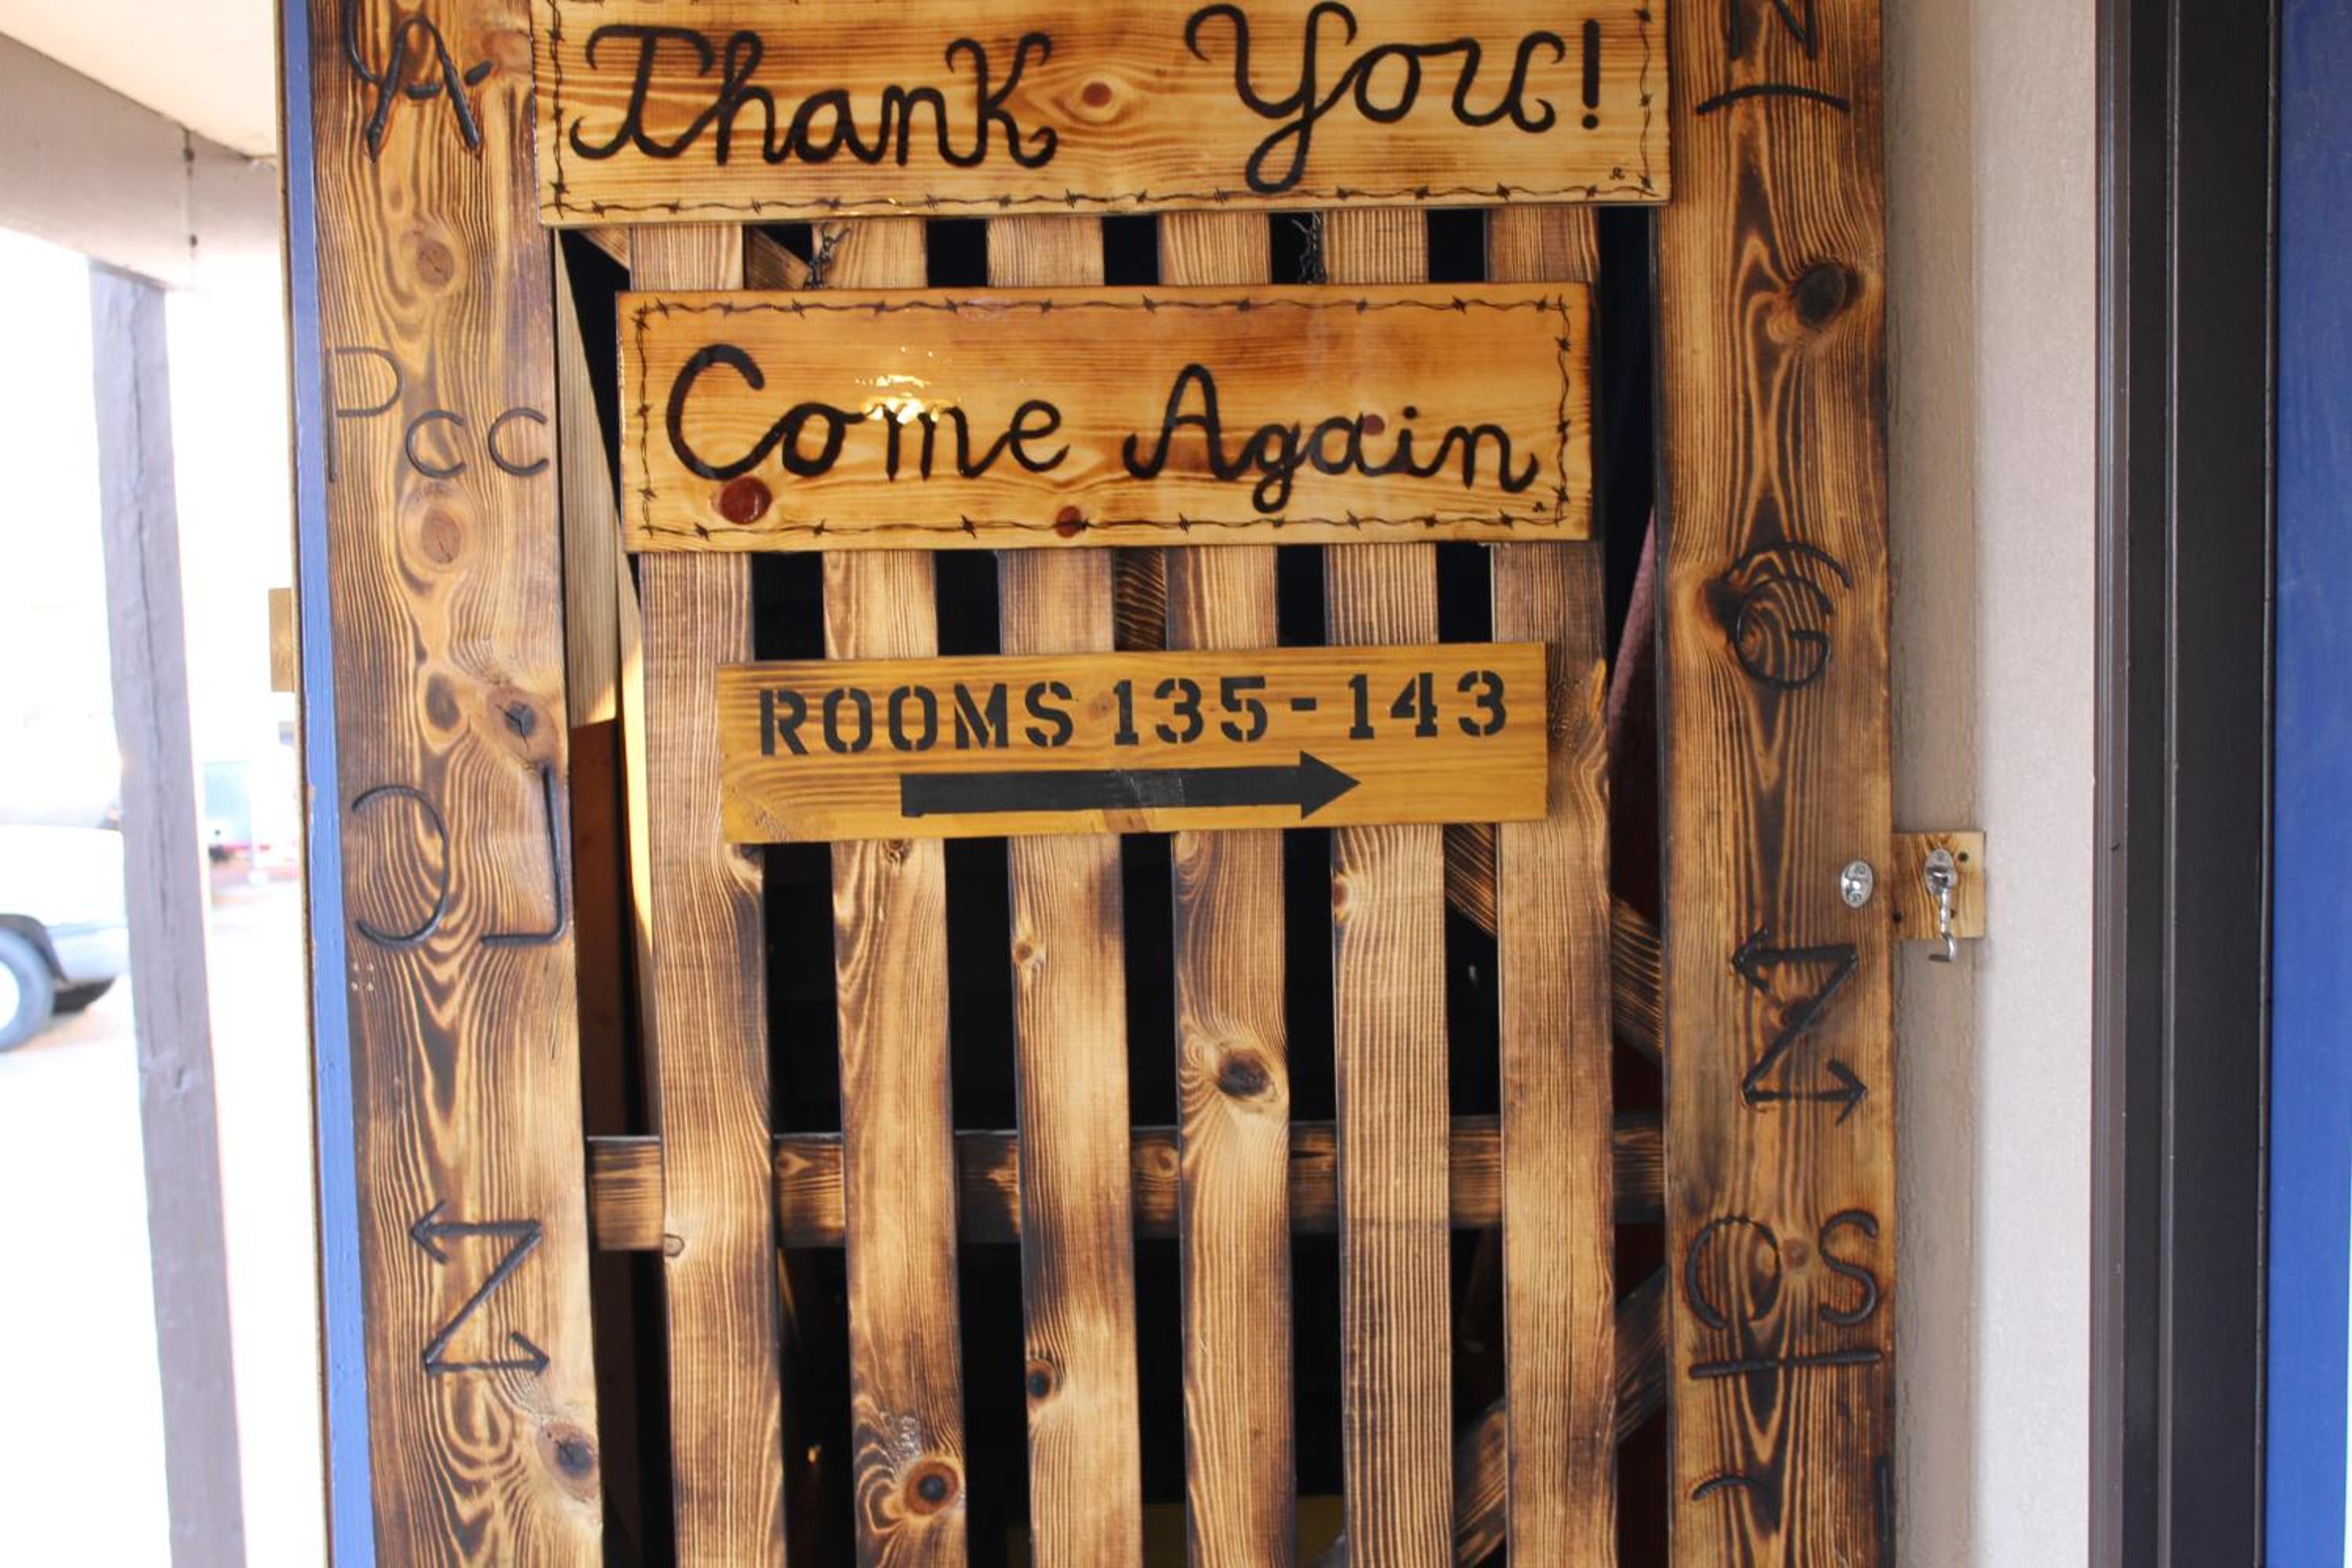 Thank You!
Come Again
ROOMS 135-143
Pcc
G
J
QS